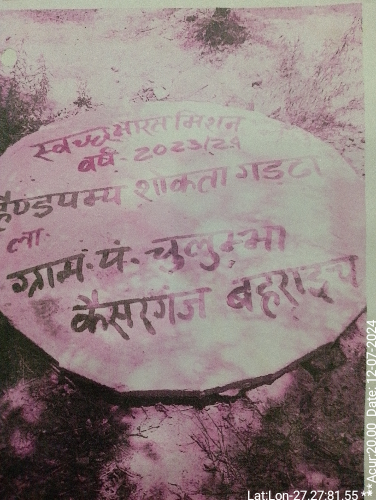 स्वच्छ भारत मिशन
वर्ष- 2023/24
हैण्डपम्प शोकता गड्ढा
ला.
ग्राम.पं.-चुलुम्भा
कैसरगंज बहराइच
Lat:Lon-27,27:81.55
**Acur:20.00 Date: 12-07-2024